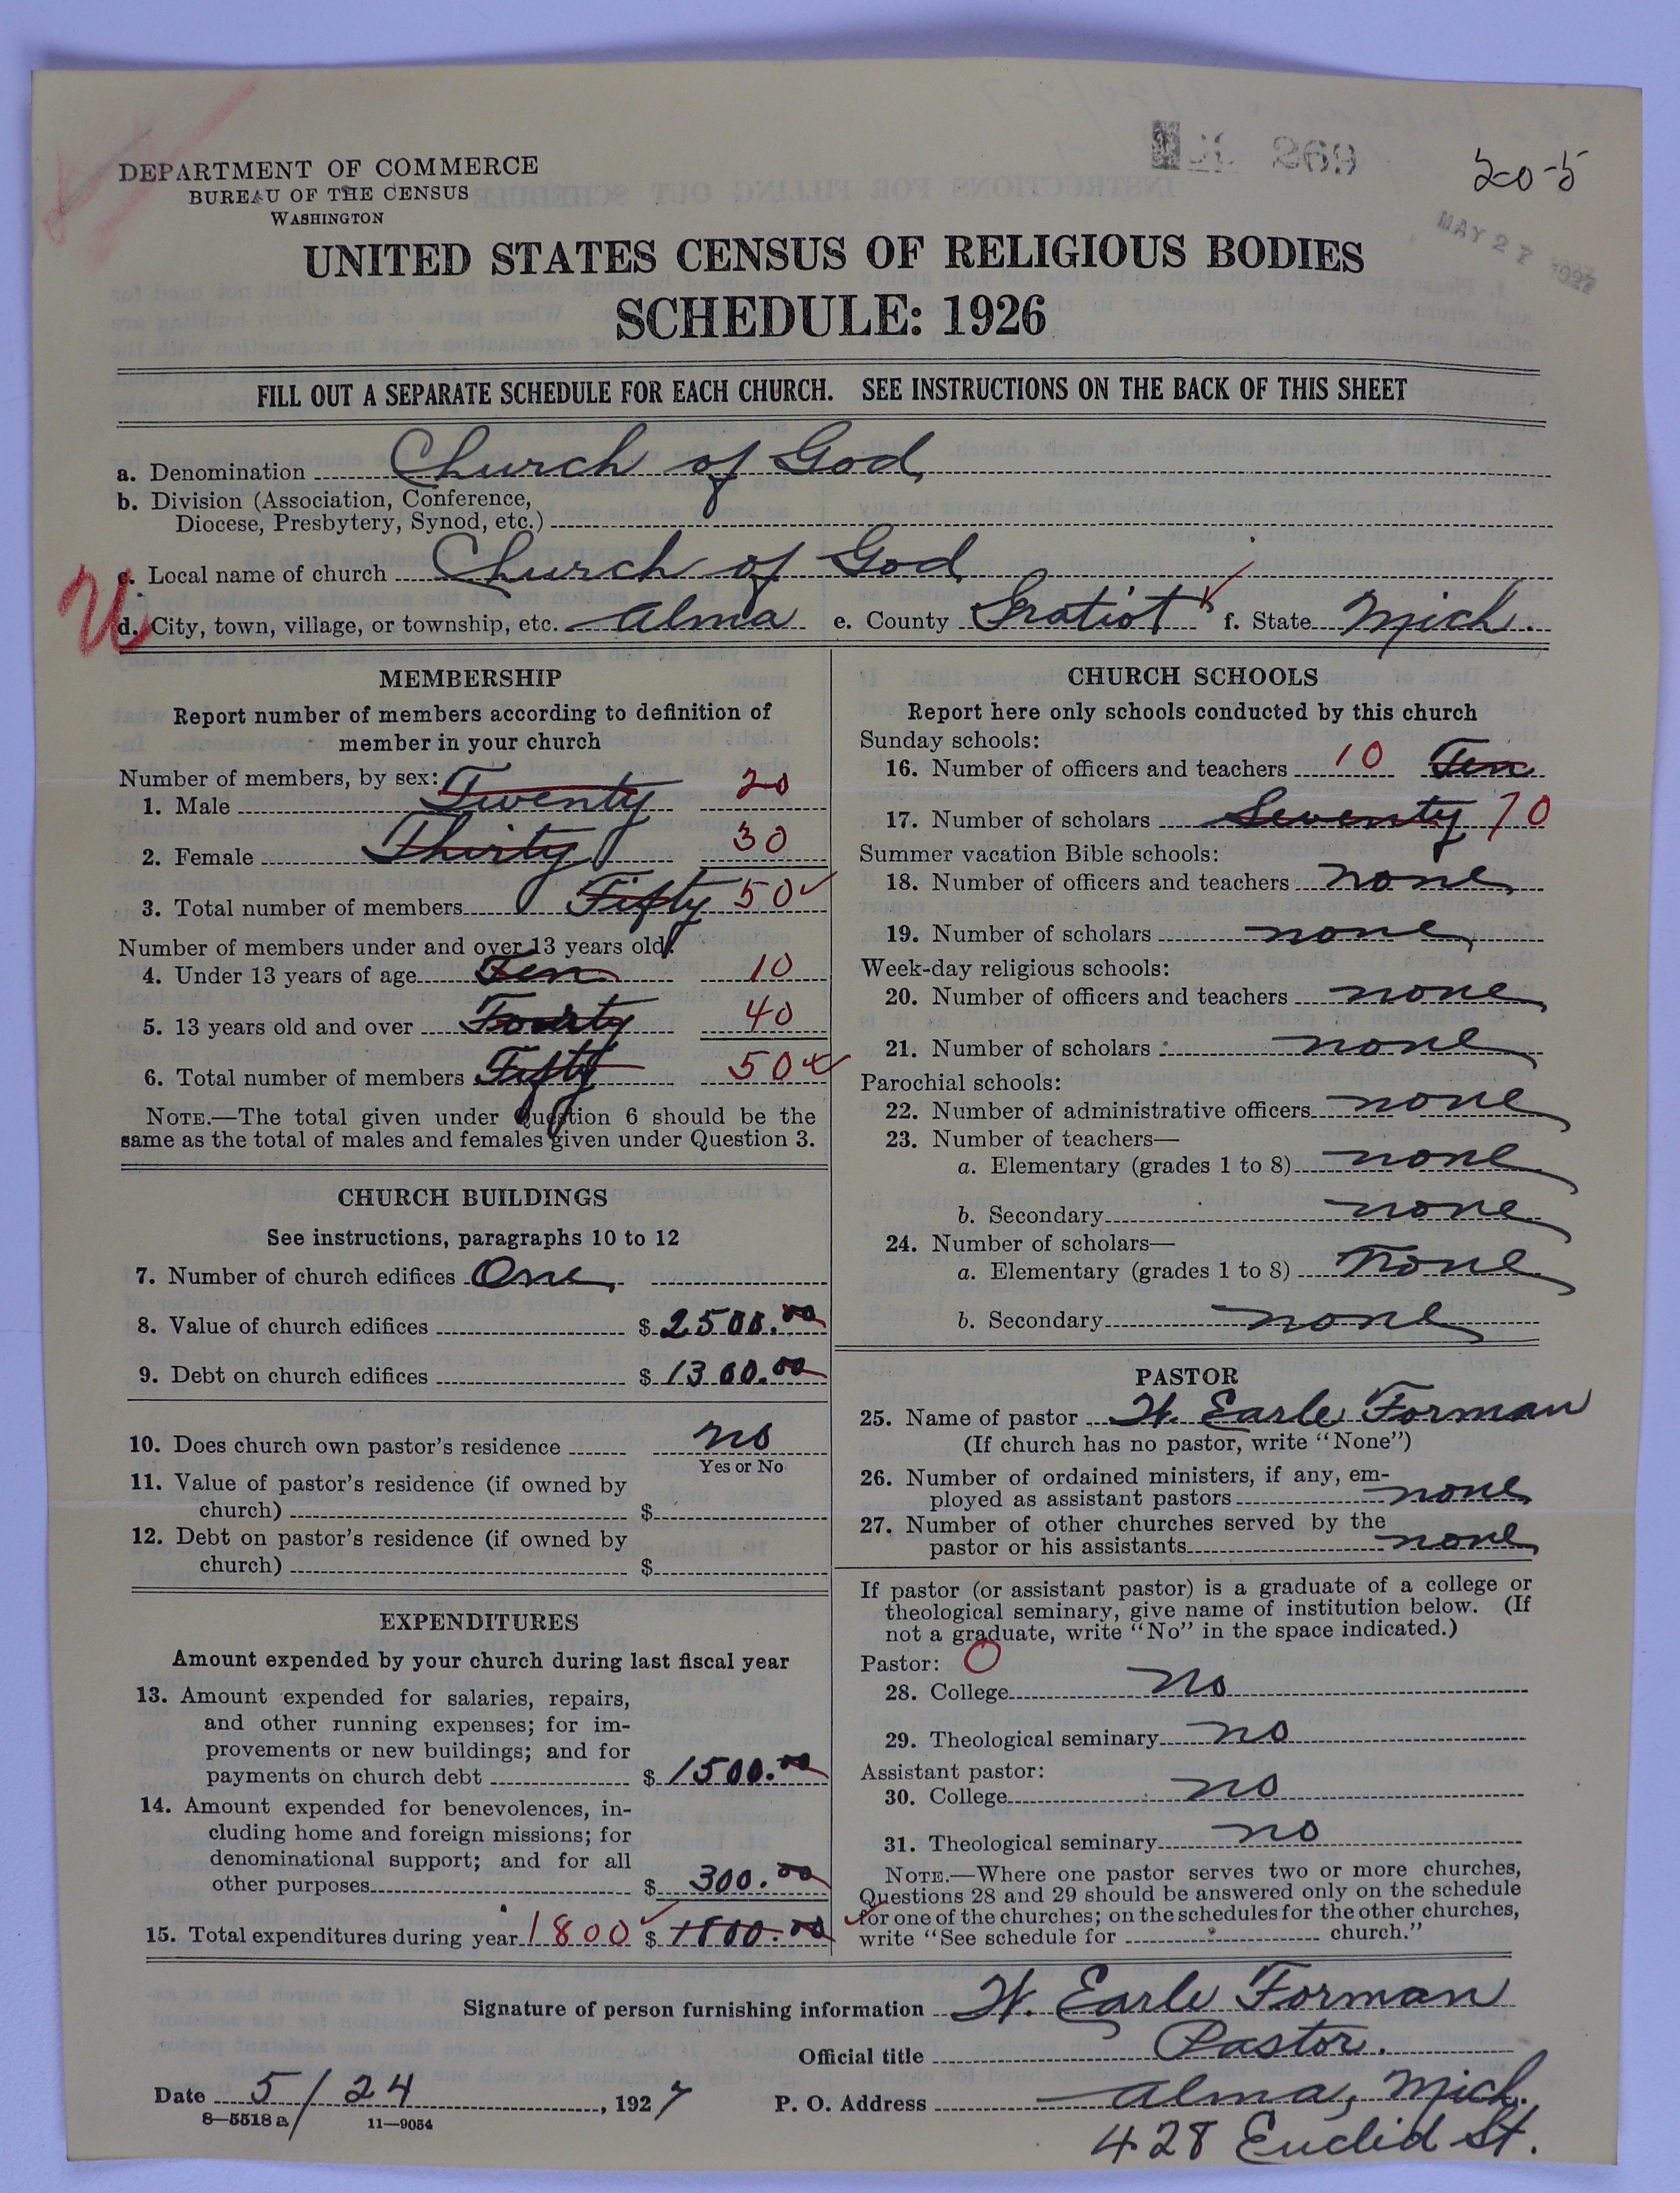 269
20-5
MAY 27 1927
DEPARTMENT OF COMMERCE
BUREAU OF THE CENSUS
WASHINGTON
UNITED STATES CENSUS OF RELIGIOUS BODIES
SCHEDULE: 1926
FILL OUT A SEPARATE SCHEDULE FOR EACH CHURCH. SEE INSTRUCTIONS ON THE BACK OF THIS SHEET
a. Denomination Church of God
b. Division (Association, Conference,
Diocese, Presbytery, Synod, etc.)
c. Local name of church Church of God
d. City, town, village, or township, etc. Alma e. County Gratiot f. State Mich.
MEMBERSHIP
Report number of members according to definition of
member in your church
Number of members, by sex:
1. Male Twenty 20
2. Female Thirty 30
3. Total number of members Fifty 50
Number of members under and over 13 years old:
4. Under 13 years of age Ten 10
5. 13 years old and over Fourty 40
6. Total number of members Fifty 50
NOTE.—The total given under Question 6 should be the
same as the total of males and females given under Question 3.
CHURCH BUILDINGS
See instructions, paragraphs 10 to 12
7. Number of church edifices One
8. Value of church edifices $ 2500.00
9. Debt on church edifices $ 1300.00
10. Does church own pastor's residence no
Yes or No
11. Value of pastor's residence (if owned by
church) $
12. Debt on pastor's residence (if owned by
church) $
EXPENDITURES
Amount expended by your church during last fiscal year
13. Amount expended for salaries, repairs,
and other running expenses; for im-
provements or new buildings; and for
payments on church debt $ 1500.00
14. Amount expended for benevolences, in-
cluding home and foreign missions; for
denominational support; and for all
other purposes $ 300.00
15. Total expenditures during year 1800 $ 1800.00
CHURCH SCHOOLS
Report here only schools conducted by this church
Sunday schools:
16. Number of officers and teachers 10 Ten
17. Number of scholars Seventy 70
Summer vacation Bible schools:
18. Number of officers and teachers none
19. Number of scholars none
Week-day religious schools:
20. Number of officers and teachers none
21. Number of scholars none
Parochial schools:
22. Number of administrative officers none
23. Number of teachers—
a. Elementary (grades 1 to 8) none
b. Secondary none
24. Number of scholars—
a. Elementary (grades 1 to 8) none
b. Secondary none
PASTOR
25. Name of pastor W. Earle Forman
(If church has no pastor, write "None")
26. Number of ordained ministers, if any, em-
ployed as assistant pastors none
27. Number of other churches served by the
pastor or his assistants none
If pastor (or assistant pastor) is a graduate of a college or
theological seminary, give name of institution below. (If
not a graduate, write "No" in the space indicated.)
Pastor: O
28. College no
29. Theological seminary no
Assistant pastor:
30. College no
31. Theological seminary no
NOTE.—Where one pastor serves two or more churches,
Questions 28 and 29 should be answered only on the schedule
for one of the churches; on the schedules for the other churches,
write "See schedule for church."
Signature of person furnishing information W. Earle Forman
Official title Pastor.
Date 5/24, 1927 P. O. Address Alma, Mich.
8—5518 a 11—9054
428 Euclid St.